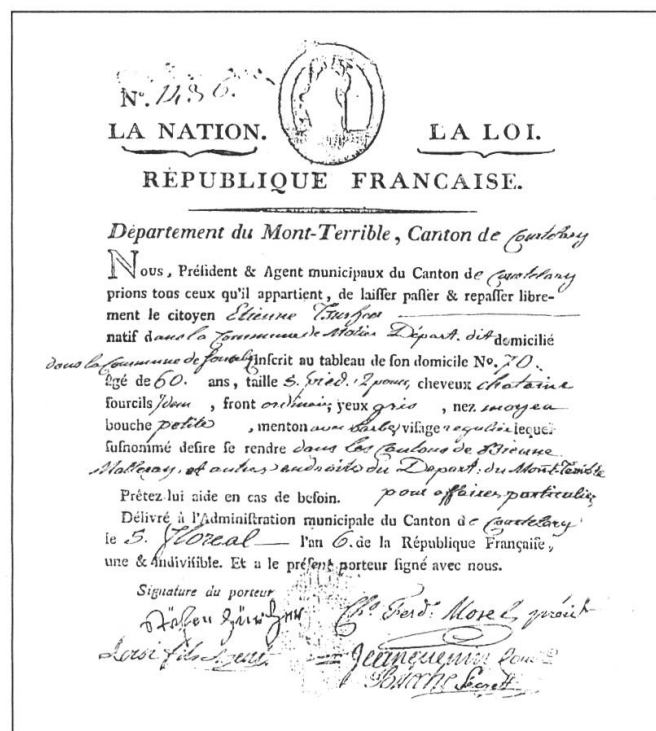 N.º 1436.
LA NATION. LA LOI.
RÉPUBLIQUE FRANCAISE.
Département du Mont-Terrible, Canton de Courtelary
Nous, Préſident & Agent municipaux du Canton de Courtelary
prions tous ceux qu'il appartient, de laiſſer paſſer & repaſſer libre-
ment le citoyen Etienne
natif dans la Commune de Départ. dit domicilié
dans la Commune de inſcrit au tableau de ſon domicile No. 70.
âgé de 60. ans, taille 5. pied. 2 pouces, cheveux chataine
ſourcils Idem, front ordinair, yeux gris, nez moyen
bouche petite, menton avec barbe, viſage regulier lequel
ſuſnommé deſire ſe rendre dans les Cantons de Bienne
Malleray, et autres endroits du Depart: du Mont-Terrible
Prêtez-lui aide en cas de beſoin. pour affaires particulier
Délivré à l'Adminiſtration municipale du Canton de Courtelary
le 5. Floreal l'an 6. de la République Françaiſe,
une & indiviſible. Et a le préſent porteur ſigné avec nous.
Signature du porteur
Ch.s Ferd.d Morel, présid.t
fils Agent Jeanguenin
Secrét